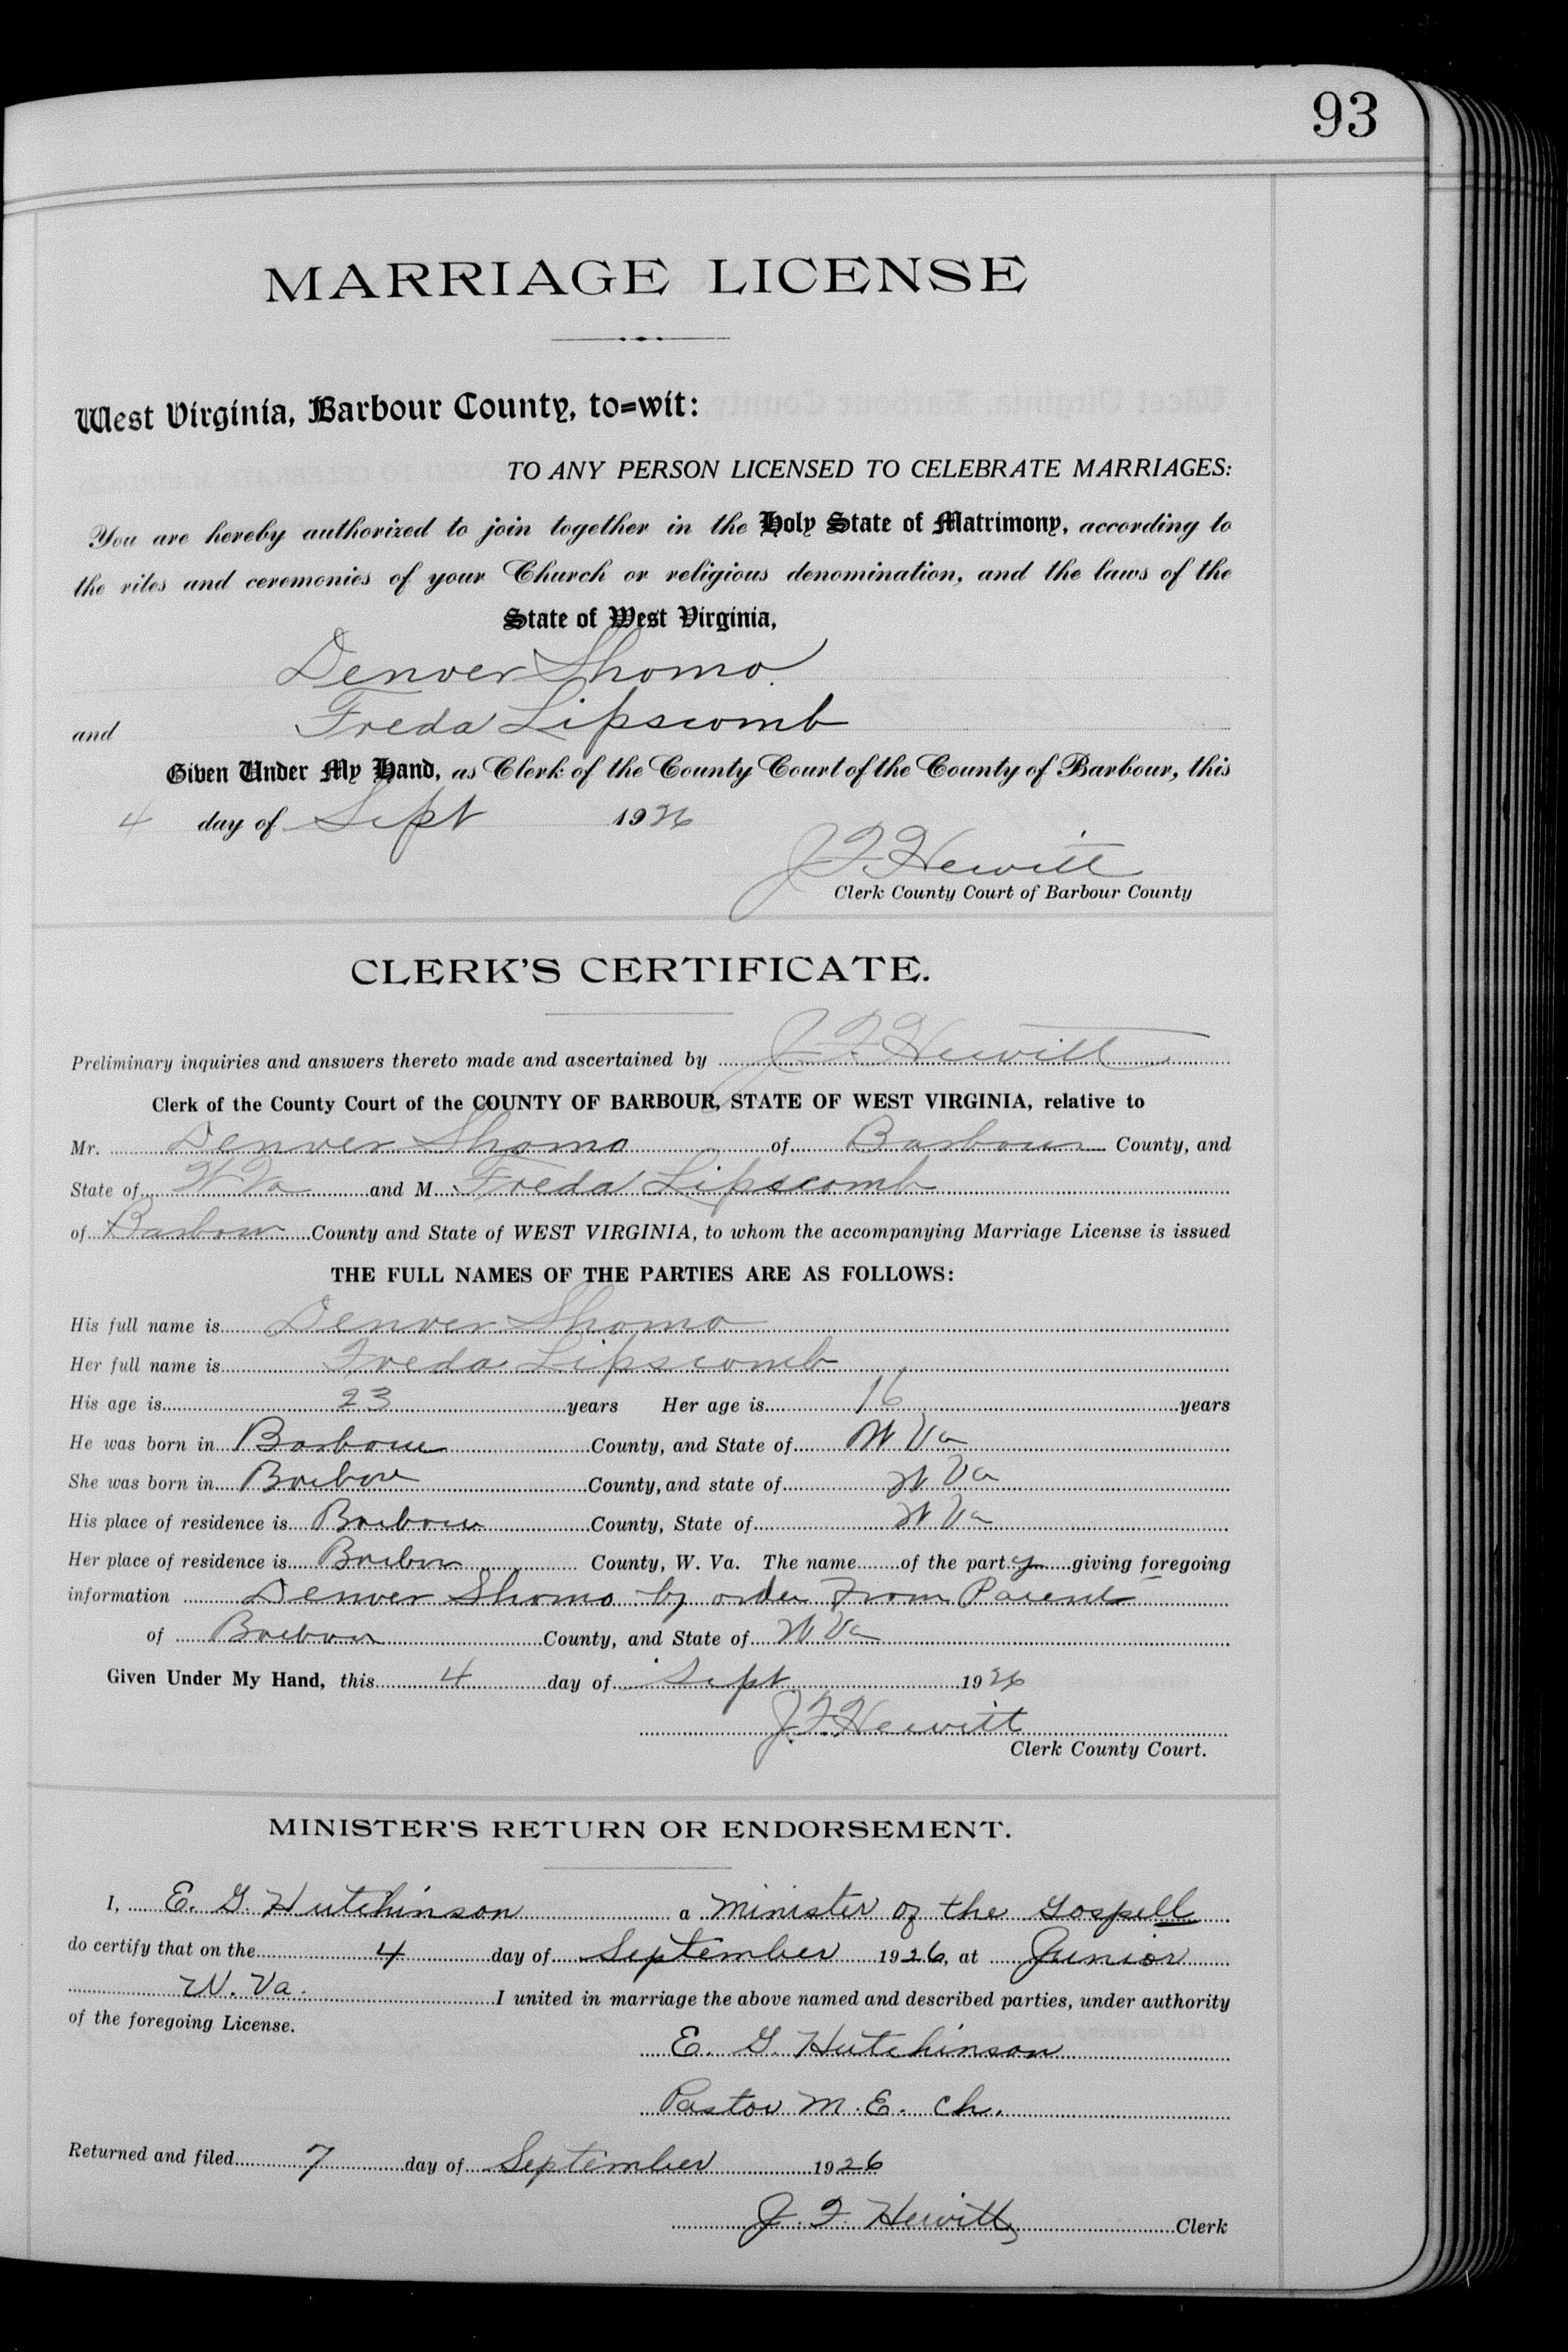 93
MARRIAGE LICENSE
West Virginia, Barbour County, to=wit:
TO ANY PERSON LICENSED TO CELEBRATE MARRIAGES:
You are hereby authorized to join together in the Holy State of Matrimony, according to
the rites and ceremonies of your Church or religious denomination, and the laws of the
State of West Virginia,
Denver Shomo
and Freda Lipscomb
Given Under My Hand, as Clerk of the County Court of the County of Barbour, this
4 day of Sept 1926
J F Hewitt
Clerk County Court of Barbour County
CLERK'S CERTIFICATE.
Preliminary inquiries and answers thereto made and ascertained by J F Hewitt
Clerk of the County Court of the COUNTY OF BARBOUR, STATE OF WEST VIRGINIA, relative to
Mr. Denver Shomo of Barbour County, and
State of W Va and M Freda Lipscomb
of Barbour County and State of WEST VIRGINIA, to whom the accompanying Marriage License is issued
THE FULL NAMES OF THE PARTIES ARE AS FOLLOWS:
His full name is Denver Shomo
Her full name is Freda Lipscomb
His age is 23 years Her age is 16 years
He was born in Barbour County, and State of W Va
She was born in Barbour County, and state of W Va
His place of residence is Barbour County, State of W Va
Her place of residence is Barbour County, W. Va. The name of the party giving foregoing
information Denver Shomo by order from Parents
of Barbour County, and State of W Va
Given Under My Hand, this 4 day of Sept 1926
J. F. Hewitt
Clerk County Court.
MINISTER'S RETURN OR ENDORSEMENT.
I, E. G. Hutchinson a Minister of the Gospell
do certify that on the 4 day of September 1926, at Junior
W. Va. I united in marriage the above named and described parties, under authority
of the foregoing License.
E. G. Hutchinson
Pastor M. E. Ch.
Returned and filed 7 day of September 1926
J. F. Hewitt Clerk